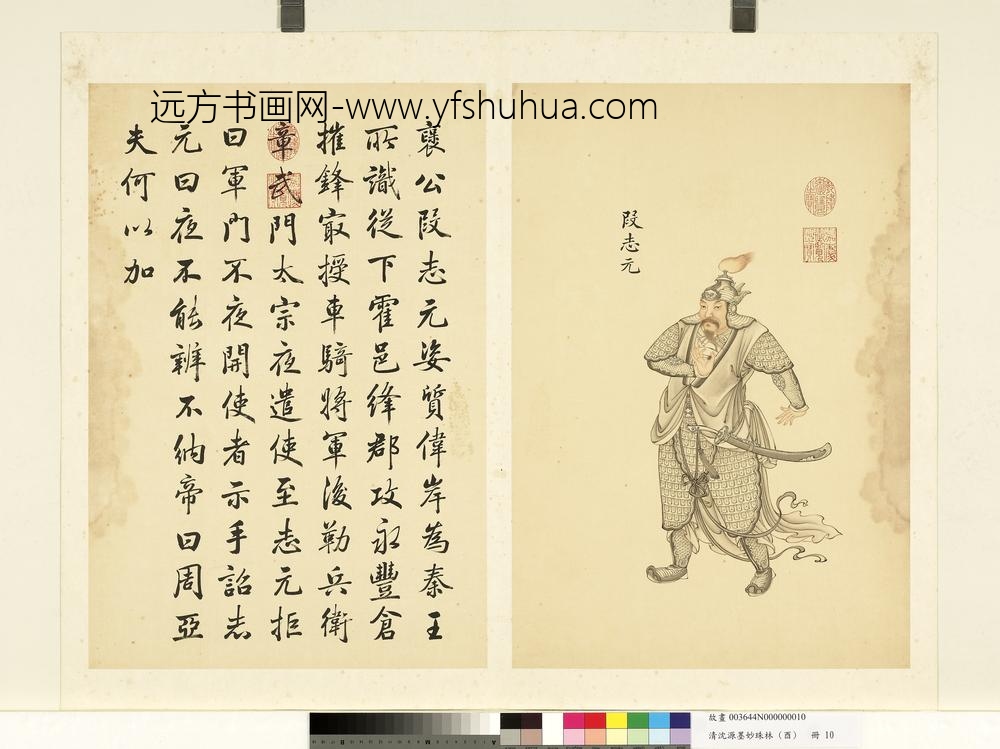 远方书画网-www.yfshuhua.com
段志元
襃公段志元姿質偉岸為秦王
所識從下霍邑絳郡攻永豐倉
摧鋒寂授車騎將軍後勒兵衛
章武門太宗夜遣使至志元拒
曰軍門不夜開使者示手詔志
元曰夜不能辨不納帝曰周亞
夫何以加
故畫 003644N000000010
清沈源墨妙珠林（酉） 冊 10